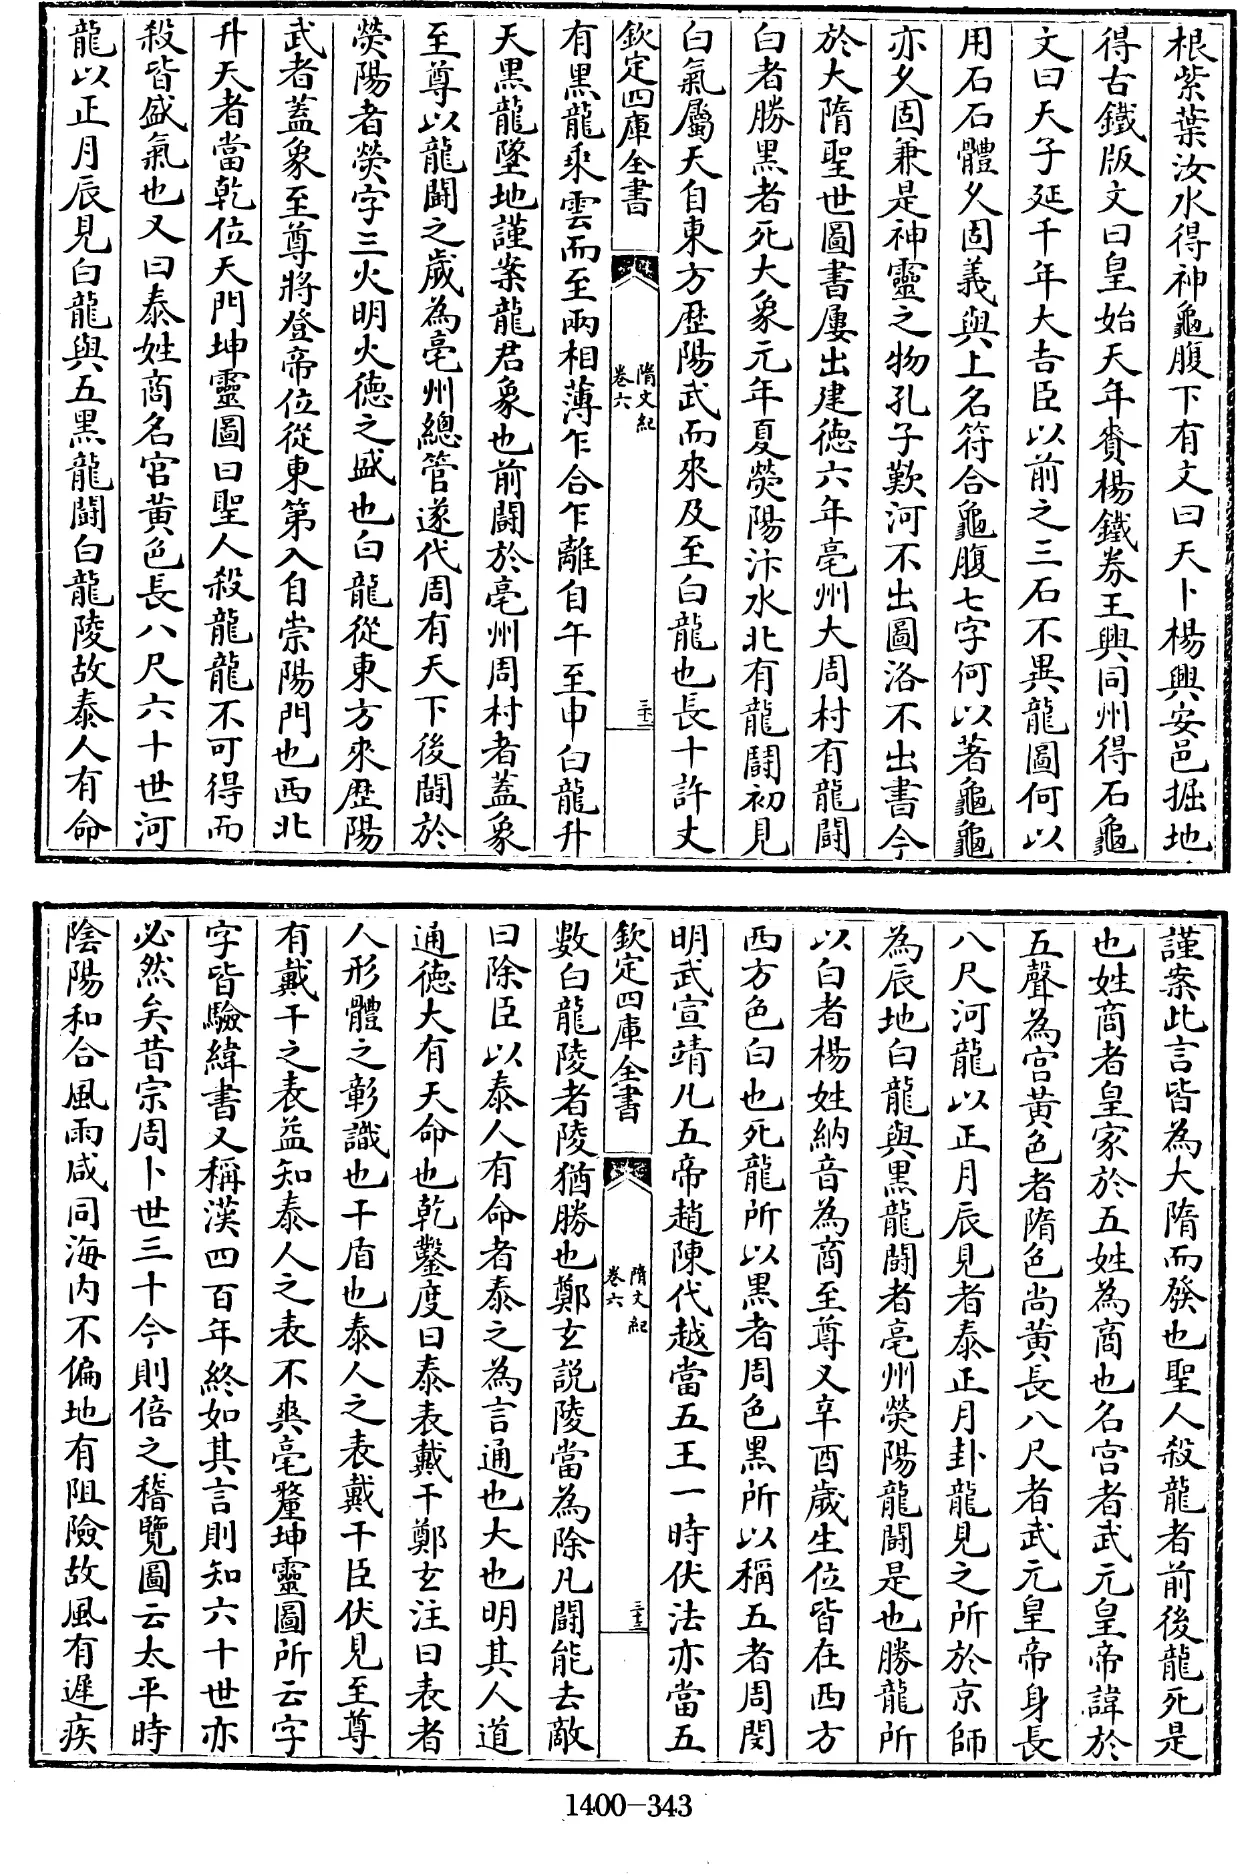 根紫葉汝水得神龜腹下有文曰天卜楊興安邑掘地
得古鐵版文曰皇始天年賚楊鐵券王興同州得石龜
文曰天子延千年大吉臣以前之三石不異龍圖何以
用石石體久固義與上名符合龜腹七字何以著龜龜
亦久固兼是神靈之物孔子歎河不出圖洛不出書今
於大隋聖世圖書屢出建德六年亳州大周村有龍鬬
白者勝黑者死大象元年夏熒陽汴水北有龍鬬初見
白氣屬天自東方歷陽武而來及至白龍也長十許丈
欽定四庫全書
隋文紀
卷六
三十二
有黑龍乘雲而至兩相薄乍合乍離自午至申白龍升
天黑龍墜地謹案龍君象也前鬬於亳州周村者蓋象
至尊以龍鬬之歲為亳州總管遂代周有天下後鬬於
熒陽者熒字三火明火德之盛也白龍從東方來歷陽
武者蓋象至尊將登帝位從東第入自崇陽門也西北
升天者當乾位天門坤靈圖曰聖人殺龍龍不可得而
殺皆盛氣也又曰泰姓商名宮黃色長八尺六十世河
龍以正月辰見白龍與五黑龍鬬白龍陵故泰人有命
謹案此言皆為大隋而發也聖人殺龍者前後龍死是
也姓商者皇家於五姓為商也名宮者武元皇帝諱於
五聲為宮黃色者隋色尚黃長八尺者武元皇帝身長
八尺河龍以正月辰見者泰正月卦龍見之所於京師
為辰地白龍與黑龍鬬者亳州熒陽龍鬬是也勝龍所
以白者楊姓納音為商至尊又辛酉歲生位皆在西方
西方色白也死龍所以黑者周色黑所以稱五者周閔
明武宣靖凡五帝趙陳代越當五王一時伏法亦當五
欽定四庫全書
隋文紀
卷六
三十三
數白龍陵者陵猶勝也鄭玄説陵當為除凡鬬能去敵
曰除臣以泰人有命者泰之為言通也大也明其人道
通德大有天命也乾鑿度曰泰表戴干鄭玄注曰表者
人形體之彰識也干盾也泰人之表戴干臣伏見至尊
有戴干之表益知泰人之表不爽亳釐坤靈圖所云字
字皆驗緯書又稱漢四百年終如其言則知六十世亦
必然矣昔宗周卜世三十今則倍之稽覽圖云太平時
陰陽和合風雨咸同海内不偏地有阻險故風有遲疾
1400-343